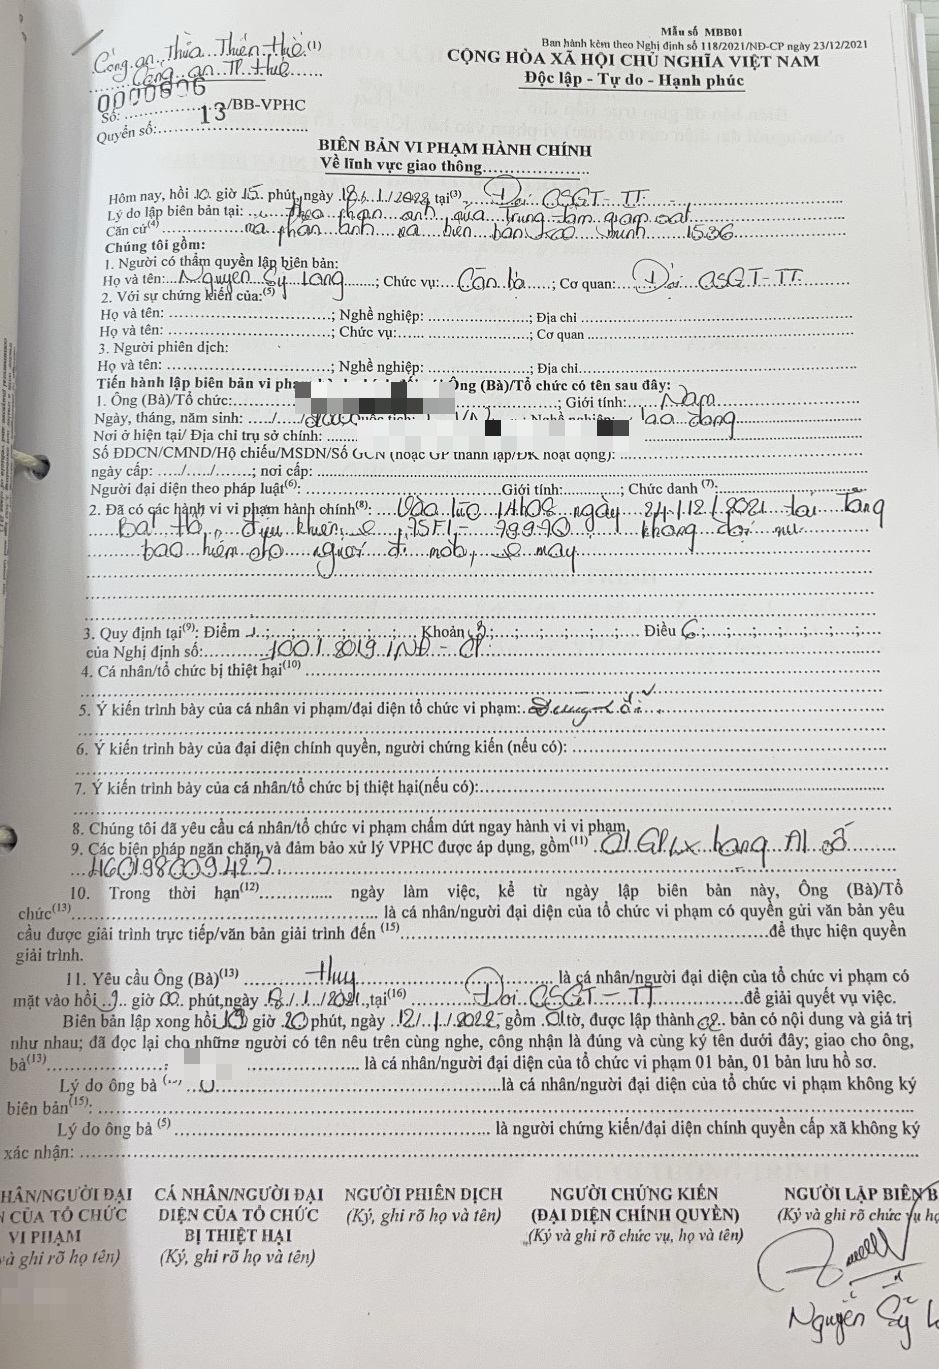 Mẫu số MBB01
Ban hành kèm theo Nghị định số 118/2021/NĐ-CP ngày 23/12/2021
Công an Thừa Thiên Huế (1)
Công an TP Huế
CỘNG HÒA XÃ HỘI CHỦ NGHĨA VIỆT NAM
Độc lập - Tự do - Hạnh phúc
Số: 0000606/BB-VPHC
Quyển số: 13
BIÊN BẢN VI PHẠM HÀNH CHÍNH
Về lĩnh vực giao thông
Hôm nay, hồi 10 giờ 15 phút, ngày 12/1/2022 tại(3) Đội CSGT-TT
Lý do lập biên bản tại: theo phản ánh qua Trung tâm giám sát
Căn cứ(4) và phản ánh và biên bản xác minh 1536
Chúng tôi gồm:
1. Người có thẩm quyền lập biên bản:
Họ và tên: Nguyễn Sỹ Long; Chức vụ: Cán bộ; Cơ quan: Đội CSGT-TT
2. Với sự chứng kiến của:(5)
Họ và tên: ; Nghề nghiệp: ; Địa chỉ
Họ và tên: ; Chức vụ: ; Cơ quan
3. Người phiên dịch:
Họ và tên: ; Nghề nghiệp: ; Địa chỉ
Tiến hành lập biên bản vi phạ Ông (Bà)/Tổ chức có tên sau đây:
1. Ông (Bà)/Tổ chức: ; Giới tính: Nam
Ngày, tháng, năm sinh: lao động
Nơi ở hiện tại/ Địa chỉ trụ sở chính:
Số ĐDCN/CMND/Hộ chiếu/MSDN/Số GCN (hoặc GP thành lập/ĐK hoạt động):
ngày cấp: / / ; nơi cấp:
Người đại diện theo pháp luật(6): Giới tính: ; Chức danh (7):
2. Đã có các hành vi vi phạm hành chính(8): Vào lúc 14h08 ngày 24/12/2021 tại Tăng
Bạt Hổ, điều khiển xe 75F1-79970 không đội mũ
bảo hiểm cho người đi mô tô, xe máy
3. Quy định tại(9): Điểm ; Khoản ; Điều 6
của Nghị định số: 100/2019/NĐ-CP
4. Cá nhân/tổ chức bị thiệt hại(10)
5. Ý kiến trình bày của cá nhân vi phạm/đại diện tổ chức vi phạm:
6. Ý kiến trình bày của đại diện chính quyền, người chứng kiến (nếu có):
7. Ý kiến trình bày của cá nhân/tổ chức bị thiệt hại(nếu có):
8. Chúng tôi đã yêu cầu cá nhân/tổ chức vi phạm chấm dứt ngay hành vi vi phạm
9. Các biện pháp ngăn chặn và đảm bảo xử lý VPHC được áp dụng, gồm(11) 01 GPLX hạng A1 số
460198009423
10. Trong thời hạn(12) ngày làm việc, kể từ ngày lập biên bản này, Ông (Bà)/Tổ
chức(13) là cá nhân/người đại diện của tổ chức vi phạm có quyền gửi văn bản yêu
cầu được giải trình trực tiếp/văn bản giải trình đến (15) để thực hiện quyền
giải trình.
11. Yêu cầu Ông (Bà)(13) Huy là cá nhân/người đại diện của tổ chức vi phạm có
mặt vào hồi 9 giờ 00 phút, ngày /1/ , tại(16) Đội CSGT-TT để giải quyết vụ việc.
Biên bản lập xong hồi giờ 20 phút, ngày 12/1/2022, gồm 01 tờ, được lập thành 02 bản có nội dung và giá trị
như nhau; đã đọc lại cho những người có tên nêu trên cùng nghe, công nhận là đúng và cùng ký tên dưới đây; giao cho ông,
bà(13) là cá nhân/người đại diện của tổ chức vi phạm 01 bản, 01 bản lưu hồ sơ.
Lý do ông bà là cá nhân/người đại diện của tổ chức vi phạm không ký
biên bản(15):
Lý do ông bà (5) là người chứng kiến/đại diện chính quyền cấp xã không ký
xác nhận:
HÂN/NGƯỜI ĐẠI CÁ NHÂN/NGƯỜI ĐẠI NGƯỜI PHIÊN DỊCH NGƯỜI CHỨNG KIẾN NGƯỜI LẬP BIÊN B
N CỦA TỔ CHỨC DIỆN CỦA TỔ CHỨC (Ký, ghi rõ họ và tên) (ĐẠI DIỆN CHÍNH QUYỀN) (Ký và ghi rõ chức vụ họ
VI PHẠM BỊ THIỆT HẠI (Ký và ghi rõ chức vụ, họ và tên)
và ghi rõ họ tên) (Ký, ghi rõ họ và tên)
Nguyễn Sỹ L